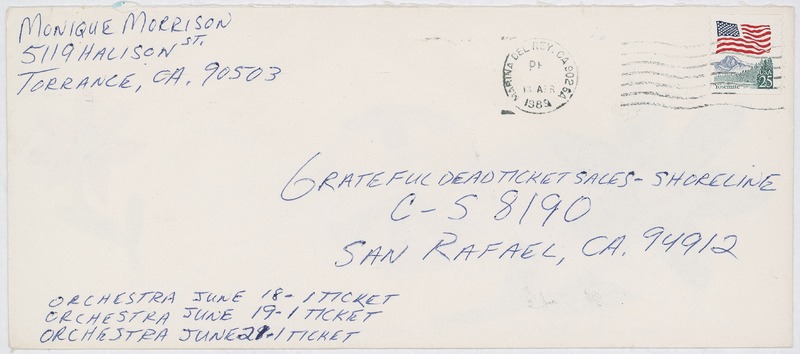 MONIQUE MORRISON
5119 HALISON ST.
TORRANCE, CA. 90503
MARINA DEL REY, CA 90264
PM
APR
1989
25
Yosemite
GRATEFUL DEAD TICKET SALES - SHORELINE
C-S 8190
SAN RAFAEL, CA. 94912
ORCHESTRA JUNE 18-1 TICKET
ORCHESTRA JUNE 19-1 TICKET
ORCHESTRA JUNE 21-1 TICKET